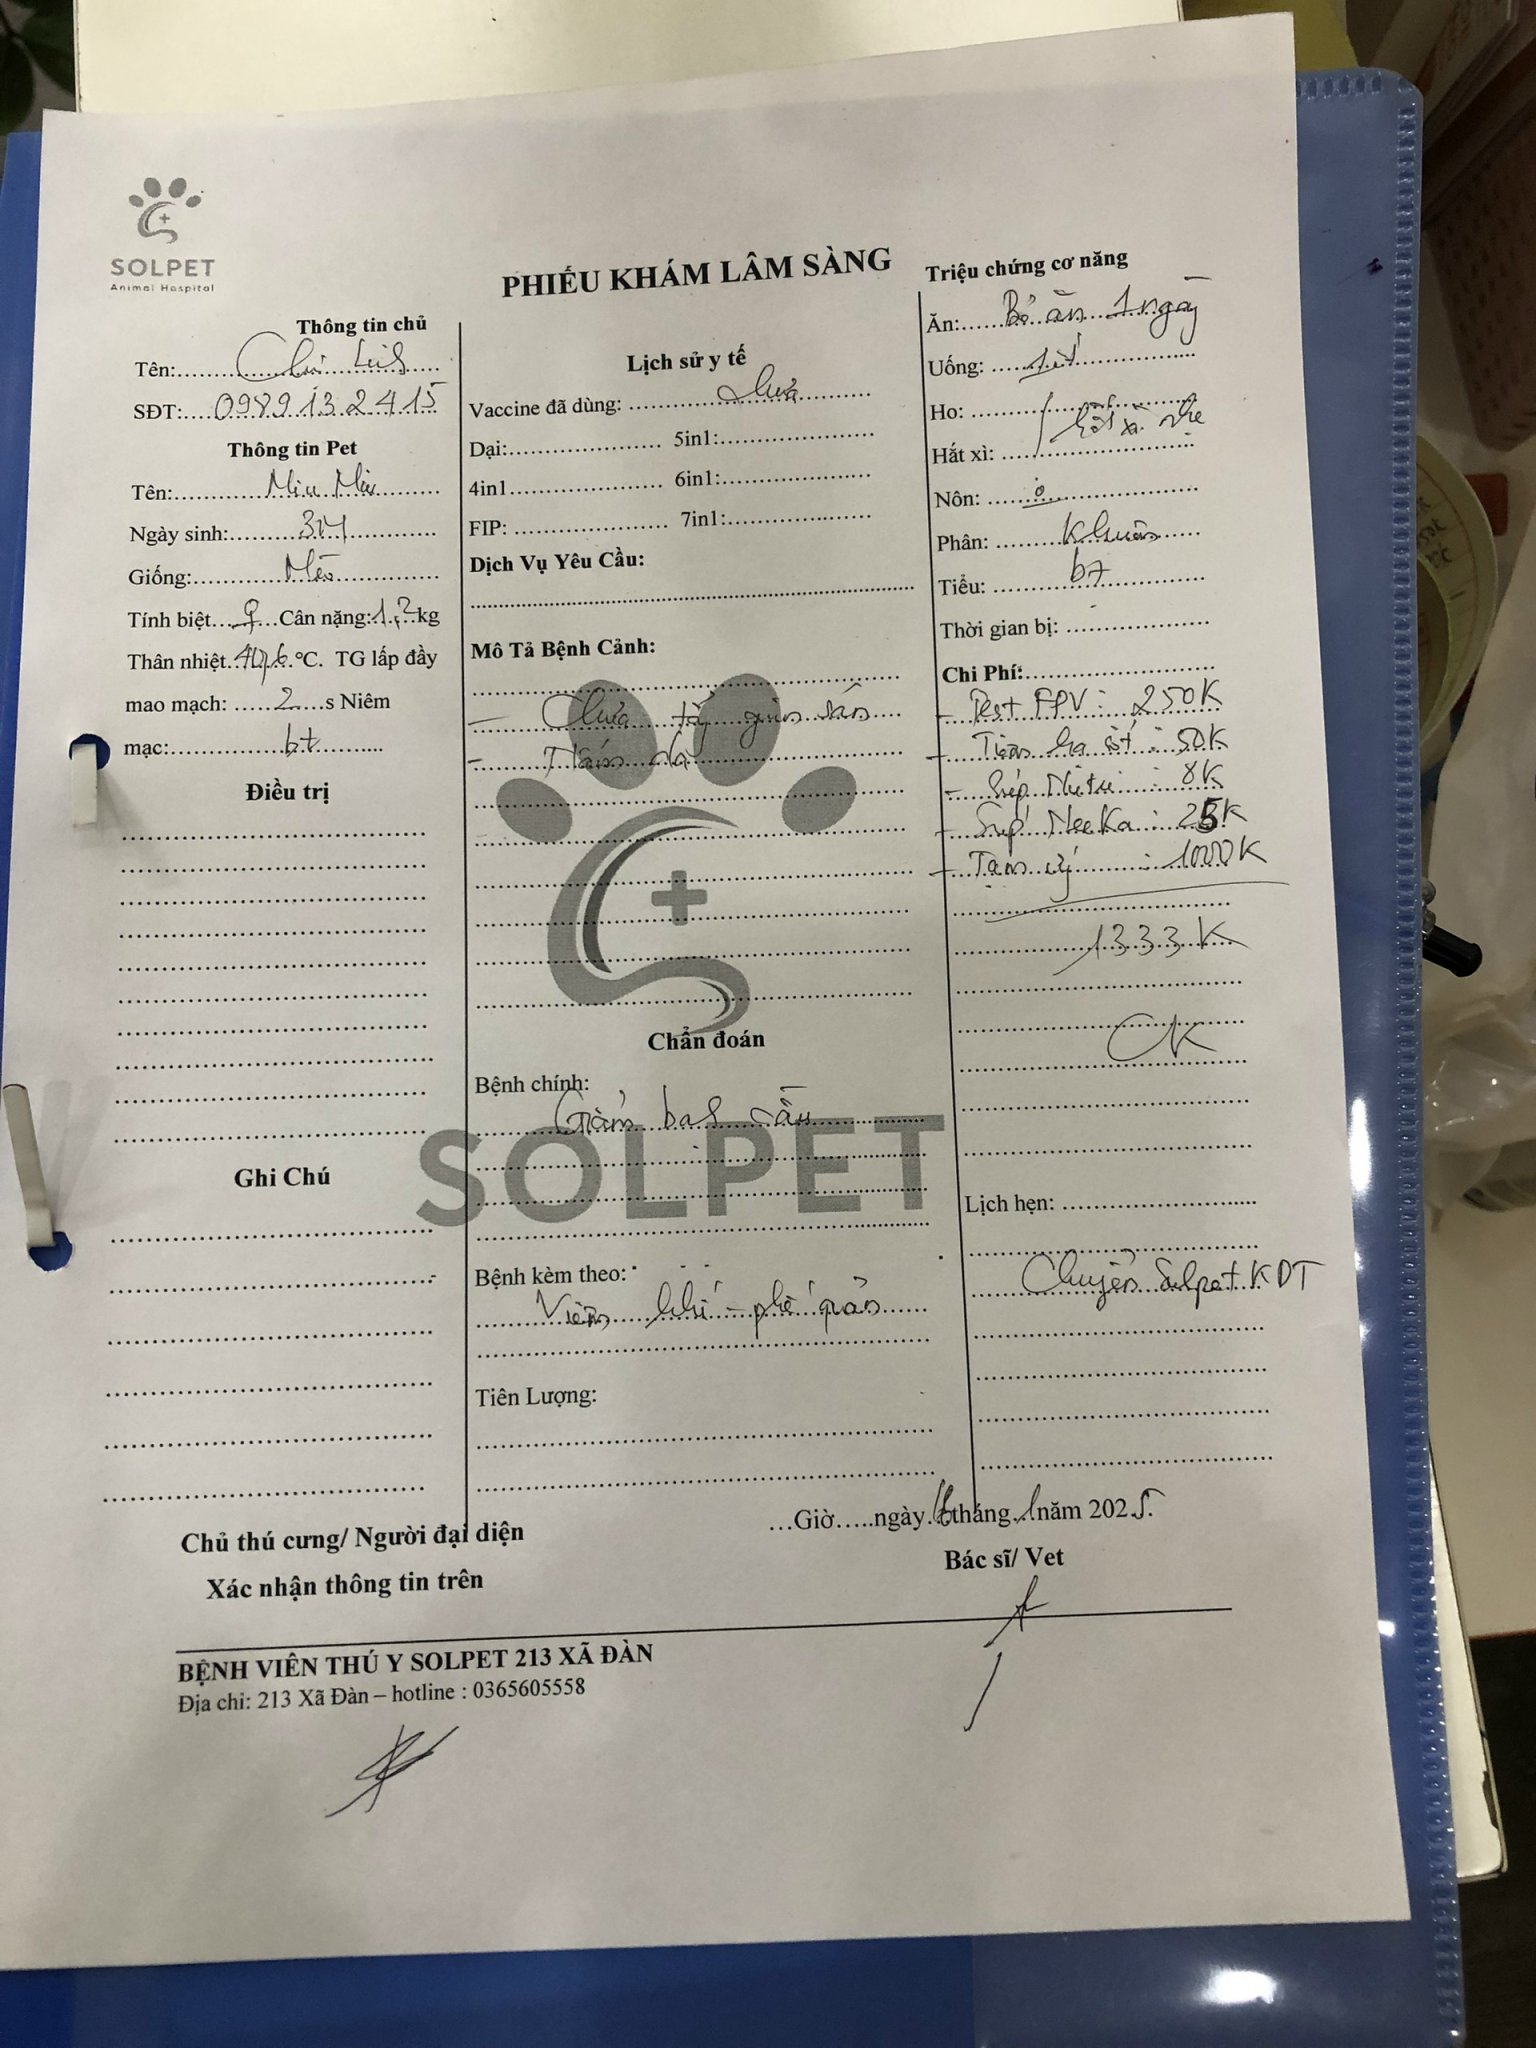 SOLPET
Animal Hospital
PHIẾU KHÁM LÂM SÀNG
Thông tin chủ
Tên:
SĐT: 0989132415
Thông tin Pet
Tên: Miu Miu
Ngày sinh: 3M
Giống: Mèo
Tính biệt ♀ Cân nặng: 1,2 kg
Thân nhiệt °C. TG lấp đầy
mao mạch: 2 s Niêm
mạc: bt
Điều trị
Ghi Chú
Lịch sử y tế
Vaccine đã dùng: chưa
Dại: 5in1:
4in1 6in1:
FIP: 7in1:
Dịch Vụ Yêu Cầu:
Mô Tả Bệnh Cảnh:
- Chưa tẩy giun sán
- Tắm
SOLPET
Chẩn đoán
Bệnh chính:
Giảm bạch cầu
Bệnh kèm theo:
Viêm khí - phế quản
Tiên Lượng:
Triệu chứng cơ năng
Ăn: Bỏ ăn 1 ngày
Uống: ít
Ho:
Hắt xì: hắt xì nhẹ
Nôn: o
Phân: Khuôn
Tiểu: bt
Thời gian bị:
Chi Phí:
- Test FPV: 250K
- Tiêm hạ sốt: 50K
- : 8K
- Súp Neeka: 25K
- Tạm ứng: 1000K
1333K
CK
Lịch hẹn:
Chuyển Solpet KDT
...Giờ.....ngày 16 tháng 1 năm 2025.
Chủ thú cưng/ Người đại diện
Xác nhận thông tin trên
Bác sĩ/ Vet
BỆNH VIỆN THÚ Y SOLPET 213 XÃ ĐÀN
Địa chỉ: 213 Xã Đàn – hotline : 0365605558